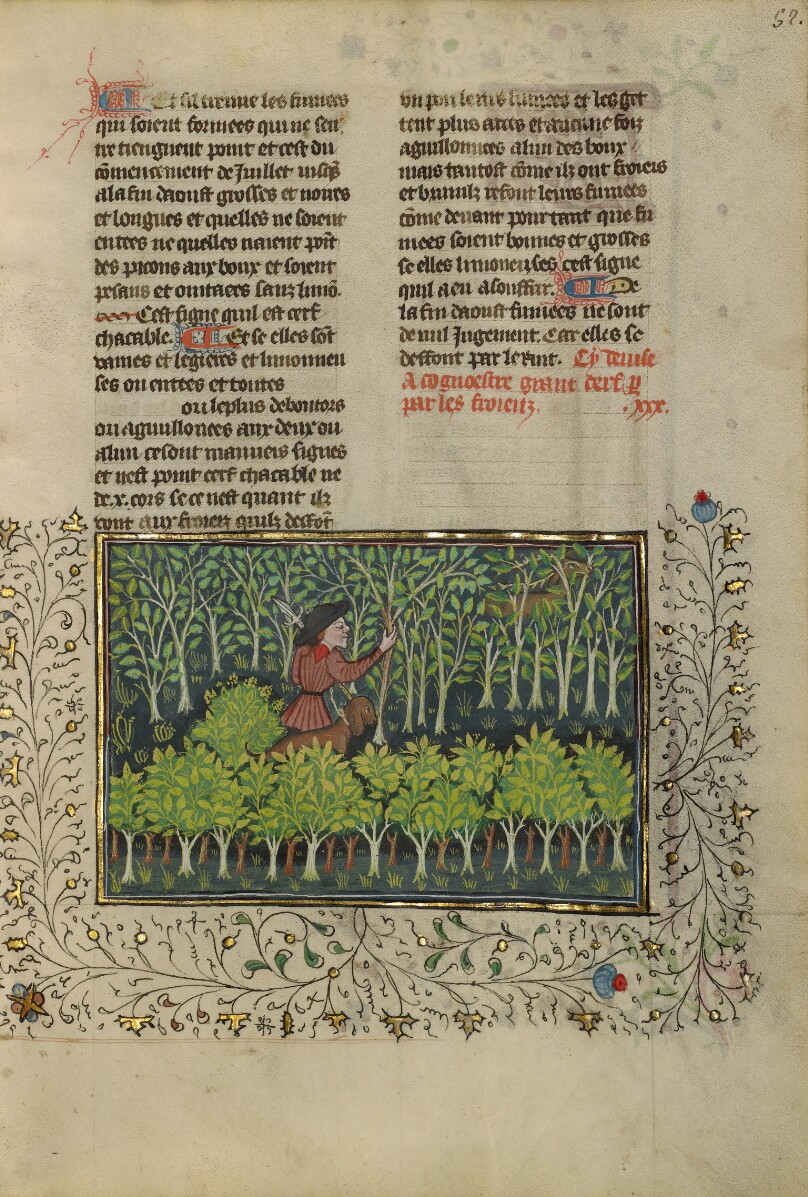 52.
Et sil treuue les fumees
qui soient formees qui ne sen
tre tiengnent point et cest du
cōmencement de Juillet iusqs
a la fin daoust grosses et noires
et longues et quelles ne soient
entees ne quelles naient poīt
des picons aux boux et soient
pesans et ointaees sanz limō.
Cest signe quil est cerf
chacable. Et se elles sōt
vames et legieres et limonneu
ses ou entees et toutes
ou le plus deboutors
ou aguillonees aux deux ou
a lun ce sont mauueis signes
et nest point cerf chacable ne
de .x. cors se ce nest quant ilz
vont aux froieiz quilz deffōt
vn pou leurs fumees et les get
tent plus arces et aucune foiz
aguillonnees a lun des boux
mais tantost cōme ilz ont froieis
et brunilz refont leurs fumees
cōme deuant pourtant que fu
mees soient bonnes et grosses
se elles limoneuses cest signe
quil a eu a souffrir. De
la fin daoust fumees ne sont
de nul Jugement. Car elles se
deffont par le rut. Cy deuise
A cognoestre grant cerf p
par les froieiz. .xxx.